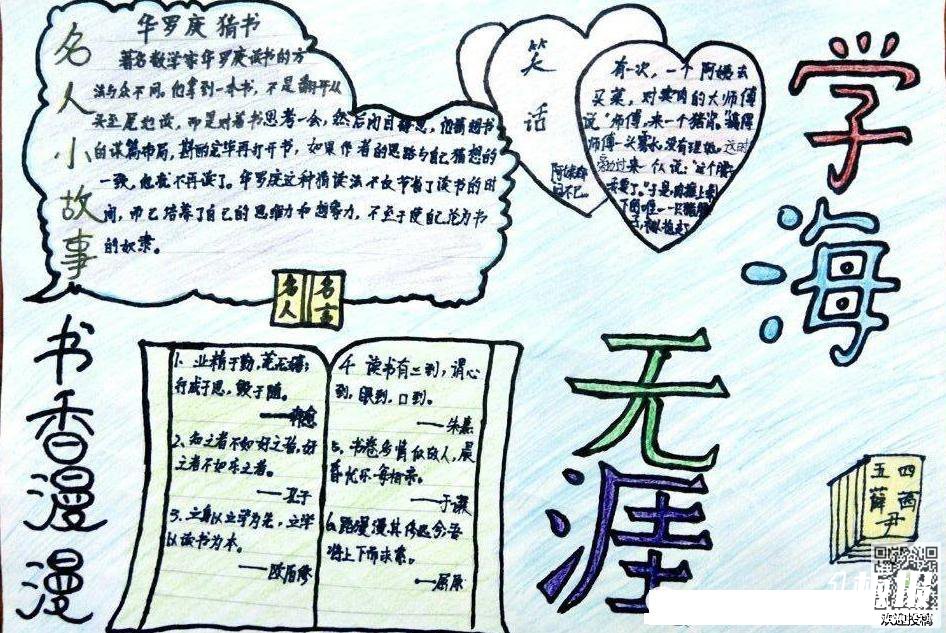 名人小故事
华罗庚猜书
著名数学家华罗庚读书的方
法与众不同。他拿到一本书，不是翻开从
头至尾地读，而是对着书思考一会，然后闭目静思，他猜想书
的谋篇布局，斟酌完毕再打开书，如果作者的思路与自己猜想的
一致，他就不再读了。华罗庚这种猜读法不仅节省了读书的时
间，而已培养了自己的思维力和想象力，不至于使自己沦为书
的奴隶。
笑话
有一次，一个阿姨去
买菜，对卖肉的大师傅
说“师傅，来一个猪
师傅一头雾水，没有理她。这时
过来一个人说：“这个
要了。”于是
下的唯一一只
学海无涯
名人名言
书香漫漫
1、业精于勤，荒于嬉；
行成于思，毁于随。
——韩愈
2、知之者不如好之者，好
之者不如乐之者。
——孔子
3、立身以立学为先，立学
以读书为本。
——欧阳修
读书有三到，谓心
到，眼到，口到。
——朱熹
5、书卷多情似故人，晨
昏忧乐每相亲。
——于谦
6、路漫漫其修远兮吾
将上下而求索。
——屈原
四酉
五薛
尹
欢迎投稿